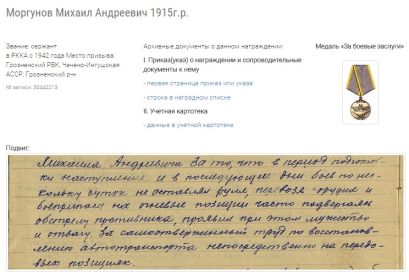 Моргунов Михаил Андреевич 1915г.р.
Звание: сержант
в РККА с 1942 года Место призыва:
Грозненский РВК, Чечено-Ингушская
АССР, Грозненский р-н
№ записи: 35442213
Архивные документы о данном награждении:
I. Приказ(указ) о награждении и сопроводительные
документы к нему
- первая страница приказ или указа
- строка в наградном списке
II. Учетная картотека
- данные в учетной картотеке
Медаль «За боевые заслуги»
Подвиг:
Михаила Андреевича За то, что в период подготов-
ки наступления и в последующие дни боев по нес-
колько суток не оставлял руля, перевозя орудия и
боеприпасы на огневые позиции часто подвергаясь
обстрелу противника, проявил при этом мужество
и отвагу. За самоотверженный труд по восстанов-
лению автотранспорта непосредственно на передо-
вых позициях.